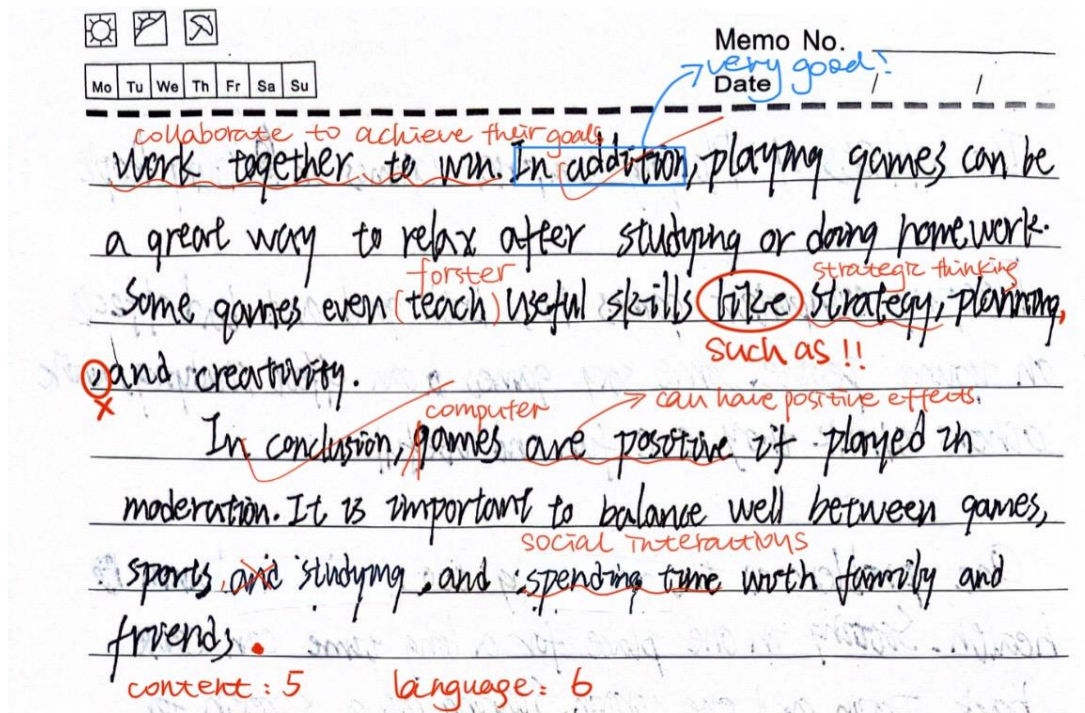 Memo No.
very good!
Mo Tu We Th Fr Sa Su
Date / /
collaborate to achieve their goals
work together to win. In addition, playing games can be
a great way to relax after studying or doing homework.
forster strategic thinking
Some games even (teach) useful skills like strategy, planning,
such as !!
, and creativity.
x
computer can have positive effects.
In conclusion, games are posotive if played in
moderation. It is important to balance well between games,
social interactions
sports, and studying, and spending time with family and
friends.
content: 5 language: 6